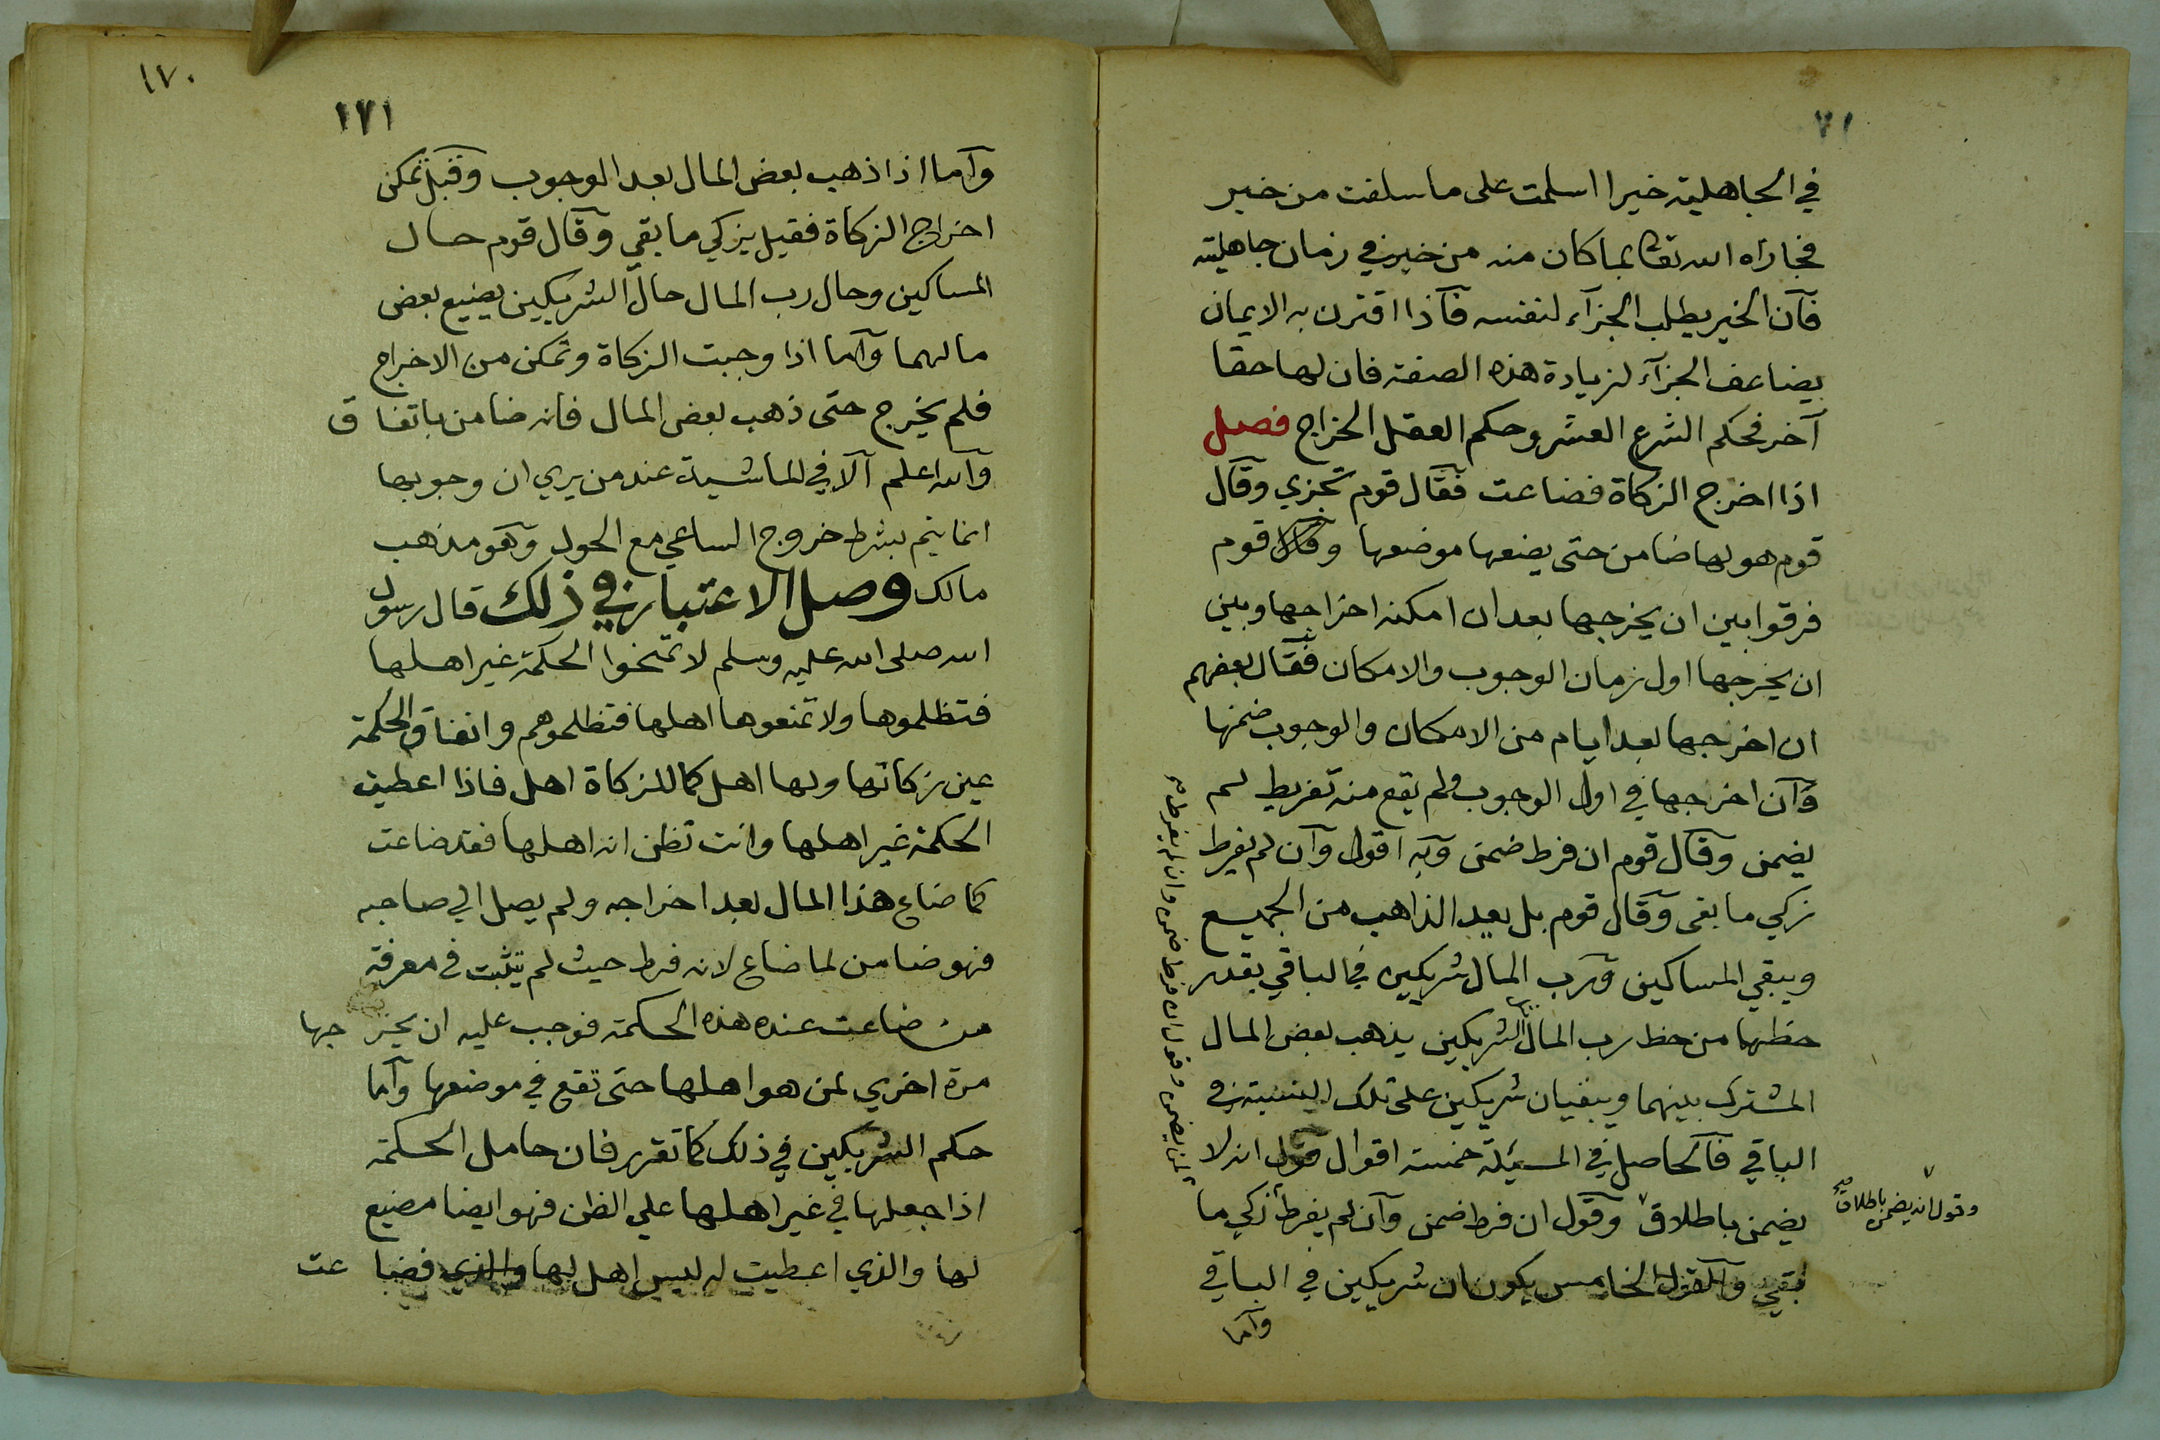 ٧١
في الجاهلية خيرا اسلمت على ما سلفت من خير
فجازاه الله تعا بما كان منه من خير في زمان جاهليته
فان الخير يطلب الجزآء لنفسه فاذا اقترن به الايمان
يضاعف الجزآء لزيادة هذه الصفة فان لها حقا
آخر فحكم الشرع العشر وحكم العقل الخراج فصل
اذا اخرج الزكاة فضاعت فقال قوم تجزي وقال
قوم هو لها ضامن حتى يضعها موضعها وقال قوم
فرقوا بين ان يخرجها بعد ان امكنه اخراجها وبين
ان يخرجها اول زمان الوجوب والامكان فقال بعضهم
ان اخرجها بعد ايام من الامكان والوجوب ضمنها
وان اخرجها في اول الوجوب ولم يقع منه تفريط لم
يضمن وقال قوم ان فرط ضمن وبه اقول وان لم يفرط
زكي ما بقى وقال قوم بل يعد الذاهب من الجميع
ويبقي المساكين ورب المال شريكين في الباقي بقدر
حظهما من حظ رب المال الشريكين يذهب بعض المال
المشترك بينهما ويبقيان شريكين على تلك النسبة في
الباقي فالحاصل في المسئلة خمسة اقوال قول انه لا
يضمن باطلاق وقول ان فرط ضمن وان لم يفرط زكي ما
بقي والقول الخامس يكونان شريكين في الباقي
واما
وقول انه يضمن باطلاق صح
١٧٠
١٧١
واما اذا ذهب بعض المال بعد الوجوب وقبل تمكن
اخراج الزكاة فقيل يزكي ما بقي وقال قوم حال
المساكين وحال رب المال حال الشريكين يضيع بعض
مالهما واما اذا وجبت الزكاة وتمكن من الاخراج
فلم يخرج حتى ذهب بعض المال فانه ضامن باتفاق
والله اعلم الا في الماشية عند من يري ان وجوبها
انما يتم بشرط خروج الساعي مع الحول وهو مذهب
مالك وصل الاعتبار في ذلك قال رسول
الله صلى الله عليه وسلم لا تمنحوا الحكمة غير اهلها
فتظلموها ولا تمنعوها اهلها فتظلموهم وانفاق الحكمة
عين زكاتها ولها اهل كما للزكاة اهل فاذا اعطيت
الحكمة غير اهلها وانت تظن انه اهلها فقد ضاعت
كما ضاع هذا المال بعد اخراجه ولم يصل الي صاحبه
فهو ضامن لما ضاع لانه فرط حيث لم يتثبت في معرفة
من ضاعت عنده هذه الحكمة فوجب عليه ان يخرجها
مرة اخري لمن هو اهلها حتى تقع في موضعها واما
حكم الشريكين في ذلك كما تقرر فان حامل الحكمة
اذا جعلها في غير اهلها علي الظن فهو ايضا مضيع
لها والذي اعطيت له ليس اهل لها والذي فضاعت